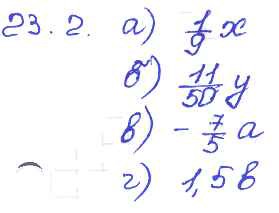 23.2. а) 1/9 x
б) 11/50 y
в) - 7/5 a
г) 1,5 b